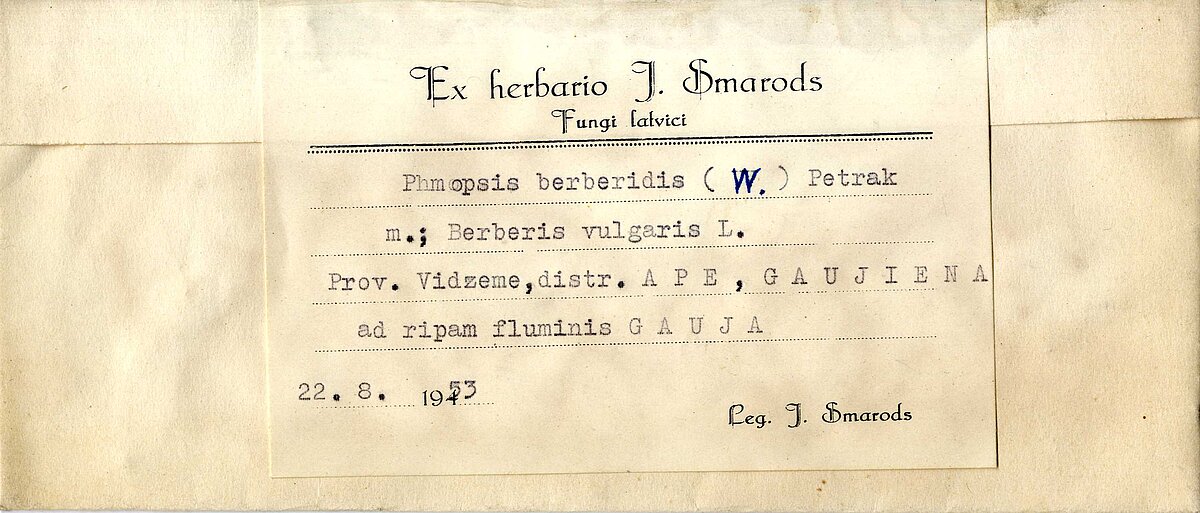 Ex herbario J. Smarods
Fungi latvici
Phmopsis berberidis ( W. ) Petrak
m.; Berberis vulgaris L.
Prov. Vidzeme,distr. A P E , G A U J I E N A
ad ripam fluminis G A U J A
22. 8. 1953
Leg. J. Smarods